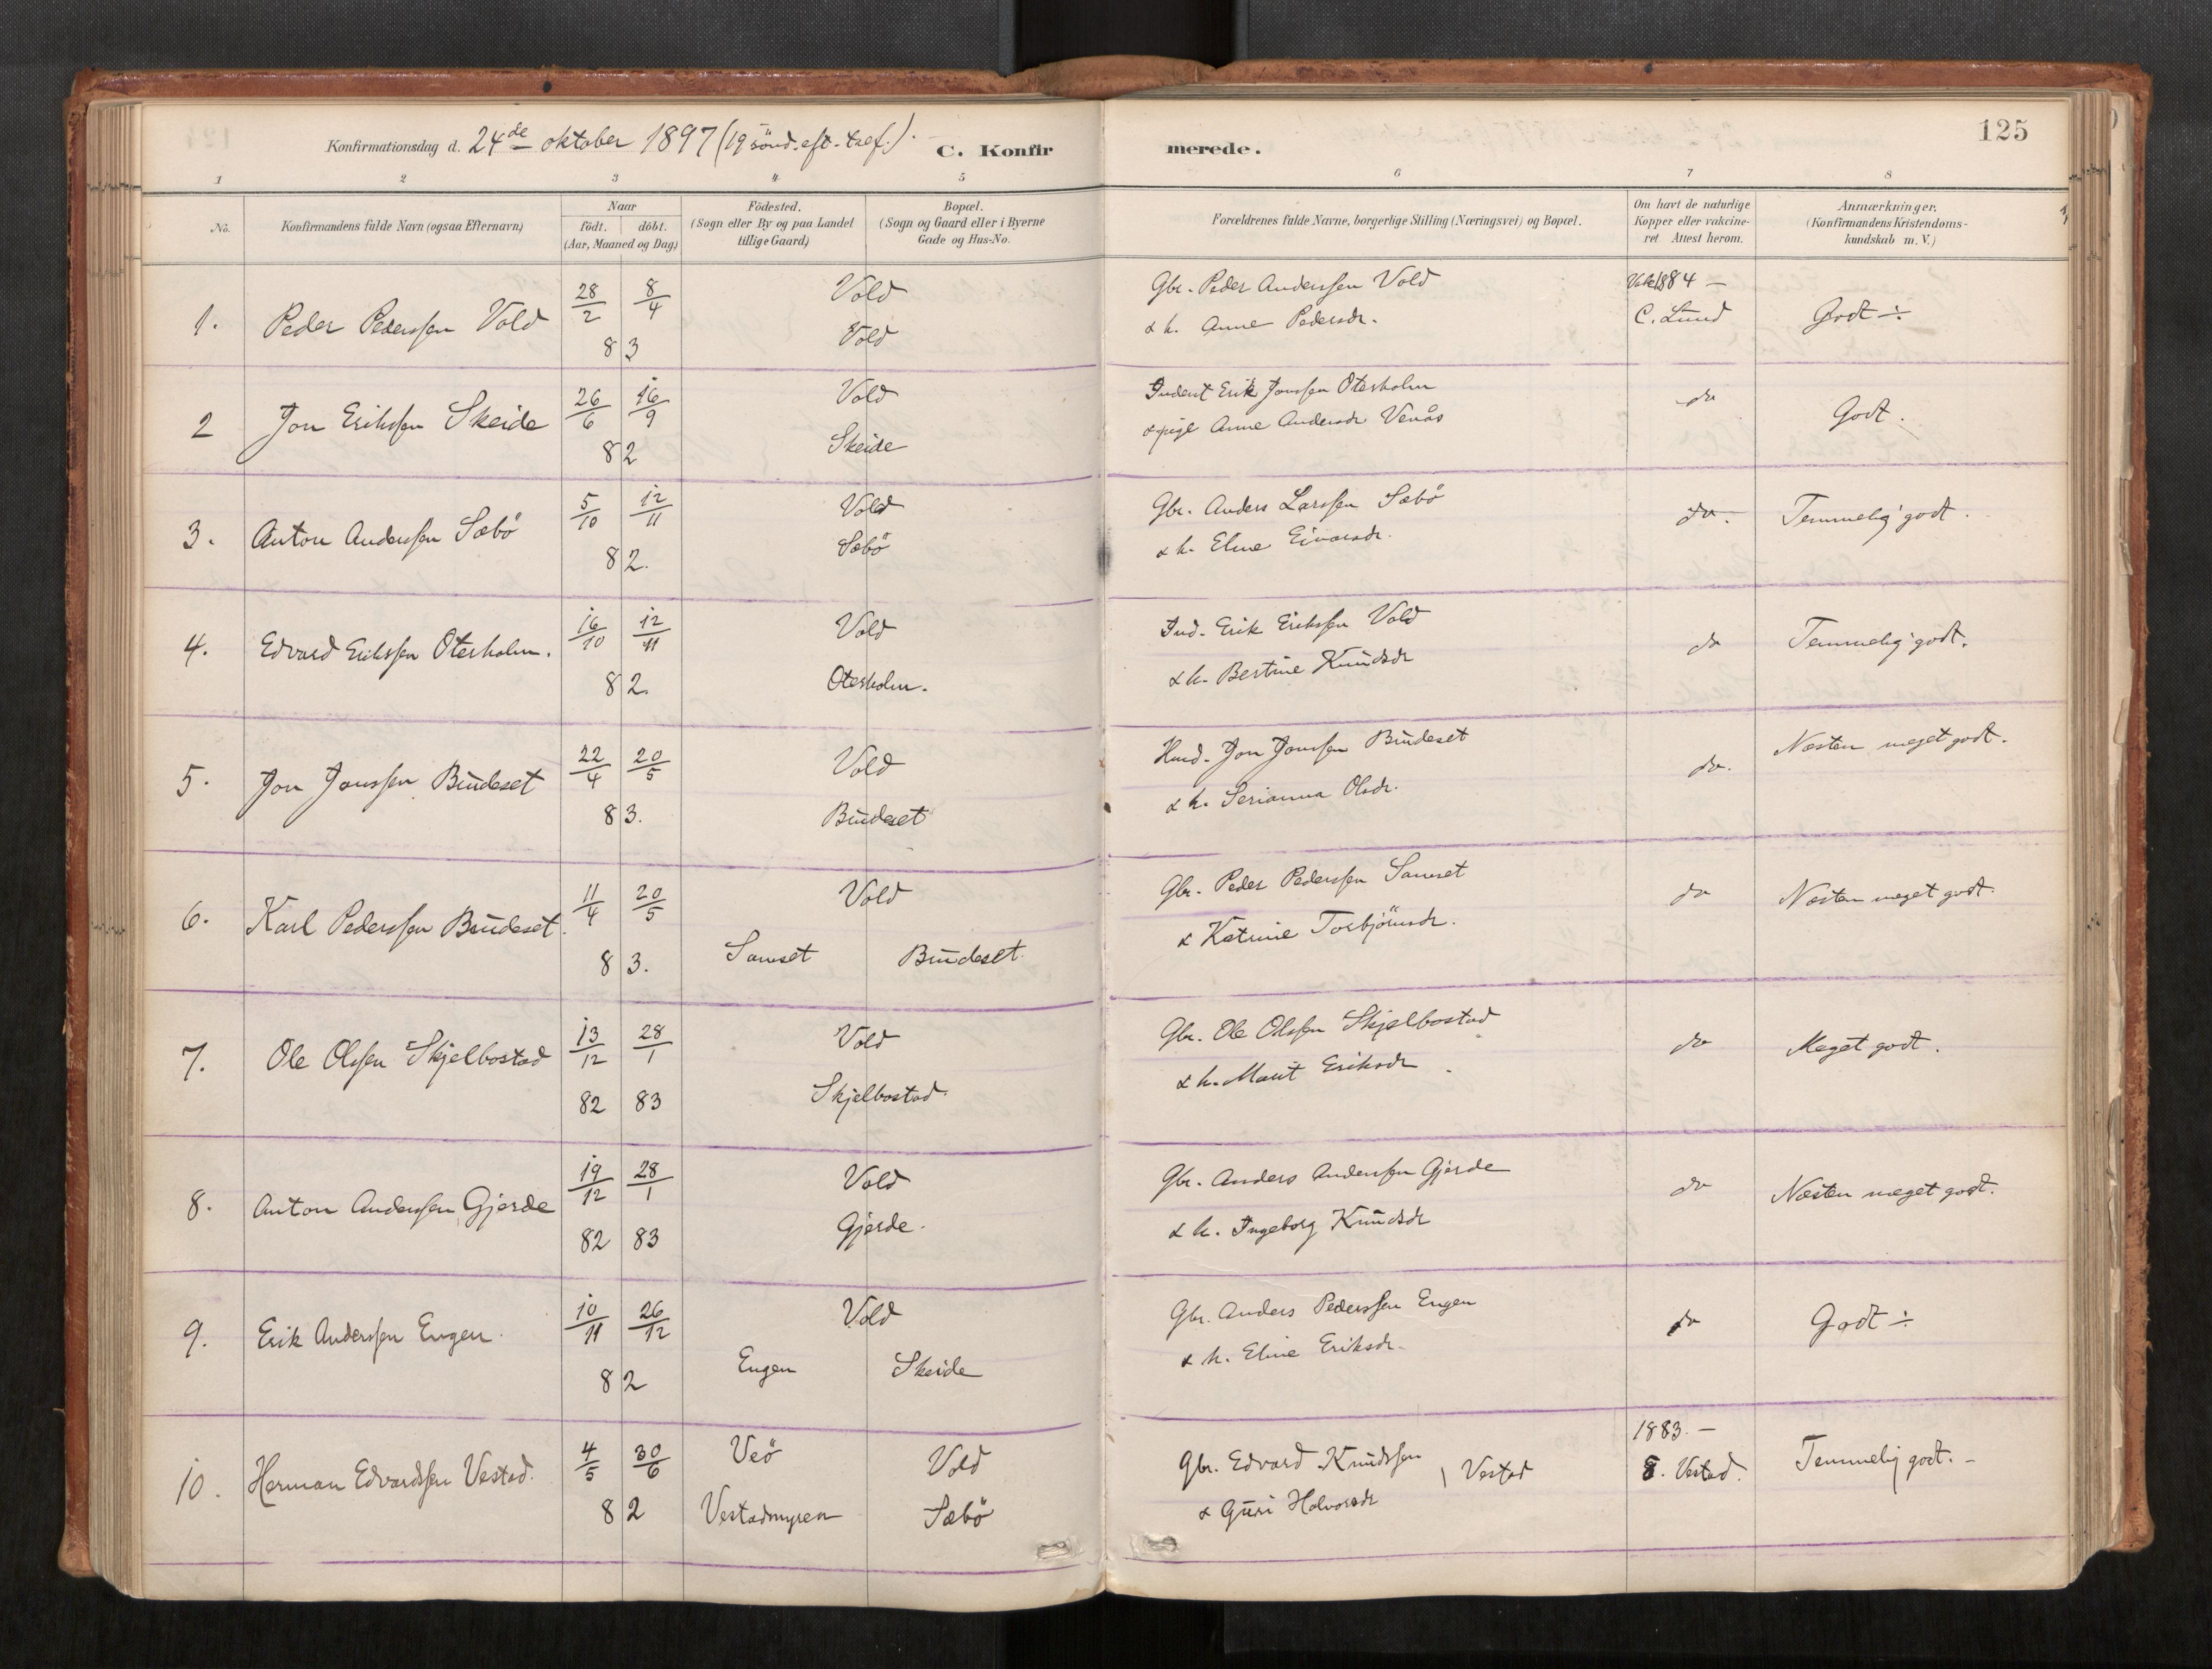 125
Konfirmationsdag d. 24de oktober 1897 (19 sönd. eft. tref.). C. Konfir merede.
1 2 3 4 5 6 7 8
No.
Konfirmandens fulde Navn (ogsaa Efternavn)
Naar
födt. döbt.
(Aar, Maaned og Dag)
Födested.
(Sogn eller By og paa Landet
tillige Gaard)
Bopæl.
(Sogn og Gaard eller i Byerne
Gade og Hus-No.
Forældrenes fulde Navne, borgerlige Stilling (Næringsvei) og Bopæl.
Om havt de naturlige
Kopper eller vakcine-
ret Attest herom.
Anmærkninger,
(Konfirmandens Kristendoms-
kundskab m. V.)
28/2 8/4 Vold Gbr. Peder Anderssen Vold Vak 1884 —
1. Peder Pederssen Vold Vold & h. Anne Pedersdr. C. Lund Godt ÷
83
26/6 16/9 Vold Indent Erik Jonssen Oterholm do
2 Jon Erikssen Skeide Skeide & pige Anne Andersdr Venås Godt.
82
5/10 12/11 Vold Gbr. Anders Larssen Sæbö
3. Anton Anderssen Sæbö Sæbö & h. Eline Eivarsdr. do. Temmelig godt.
82.
16/10 12/11 Vold Ind. Erik Erikssen Vold
4. Edvard Erikssen Oterholm. do Temmelig godt.
82. Oterholm. & h. Bertine Knudsdr
22/4 20/5 Vold Hmd. Jon Jonssen Budeset Næsten meget godt.
5. Jon Jonssen Budeset do.
83. Budeset & h. Serianna Olsdr.
11/4 20/5 Vold Gbr. Peder Pederssen Sanset
6. Karl Pederssen Budeset. do Næsten meget godt.
83. Sanset Budeset & Katrine Torbjörnsdr.
13/12 28/1 Vold Gbr. Ole Olssen Skjelbostad
7. Ole Olssen Skjelbostad do Meget godt.
82 83 Skjelbostad & h. Marit Eriksdr
19/12 28/1 Vold Gbr. Anders Anderssen Gjerde
8. Anton Anderssen Gjerde do Næsten meget godt.
82 83 Gjerde. & h. Ingeborg Knudsdr
10/11 26/12 Vold Gbr. Anders Pederssen Engen
9. Erik Anderssen Engen. do Godt ÷
82 Engen Skeide & h. Eline Eriksdr.
4/5 30/6 Veö Vold Gbr. Edvard Knudssen 1883. —
10. Herman Edvardssen Vestad. Vestad E. Vestad. Temmelig godt. —
82 Vestadmyren Sæbö & Guri Halvorsdr